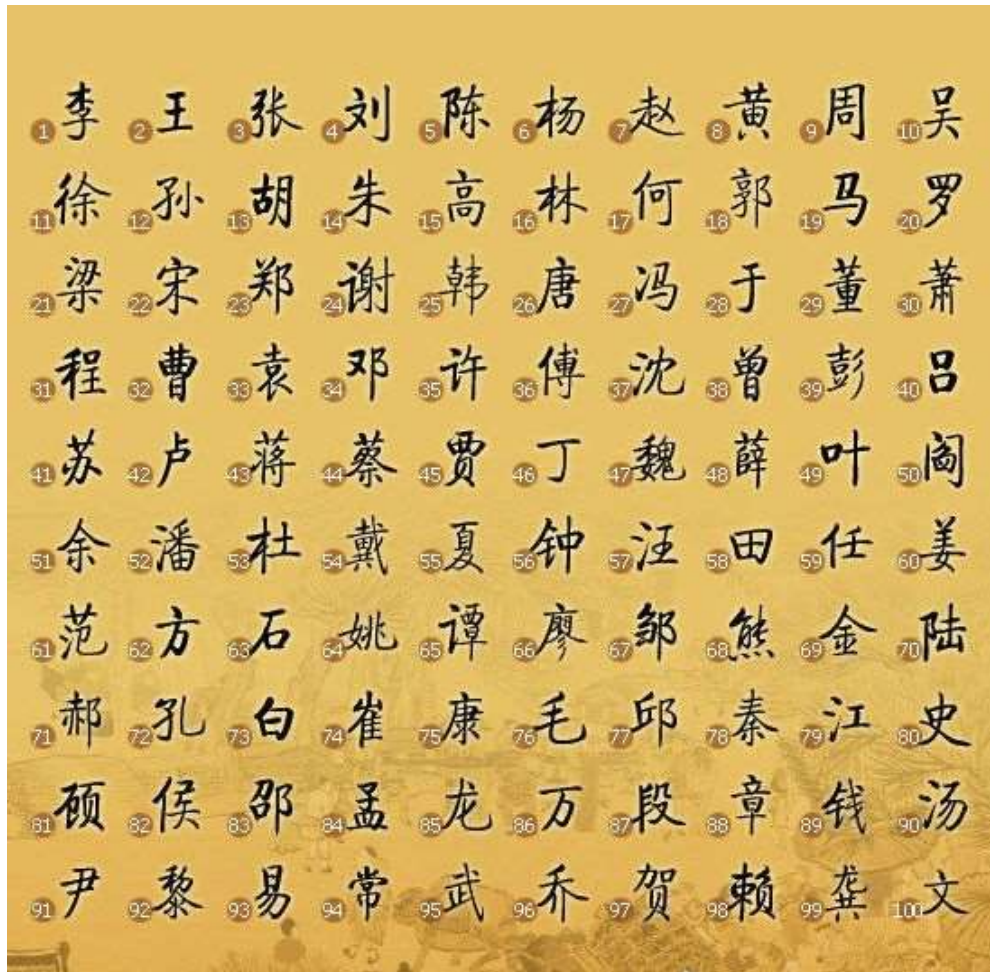 1 李 2 王 3 张 4 刘 5 陈 6 杨 7 赵 8 黄 9 周 10 吴
11 徐 12 孙 13 胡 14 朱 15 高 16 林 17 何 18 郭 19 马 20 罗
21 梁 22 宋 23 郑 24 谢 25 韩 26 唐 27 冯 28 于 29 董 30 萧
31 程 32 曹 33 袁 34 邓 35 许 36 傅 37 沈 38 曾 39 彭 40 吕
41 苏 42 卢 43 蒋 44 蔡 45 贾 46 丁 47 魏 48 薛 49 叶 50 阎
51 余 52 潘 53 杜 54 戴 55 夏 56 钟 57 汪 58 田 59 任 60 姜
61 范 62 方 63 石 64 姚 65 谭 66 廖 67 邹 68 熊 69 金 70 陆
71 郝 72 孔 73 白 74 崔 75 康 76 毛 77 邱 78 秦 79 江 80 史
81 顾 82 侯 83 邵 84 孟 85 龙 86 万 87 段 88 章 89 钱 90 汤
91 尹 92 黎 93 易 94 常 95 武 96 乔 97 贺 98 赖 99 龚 100 文